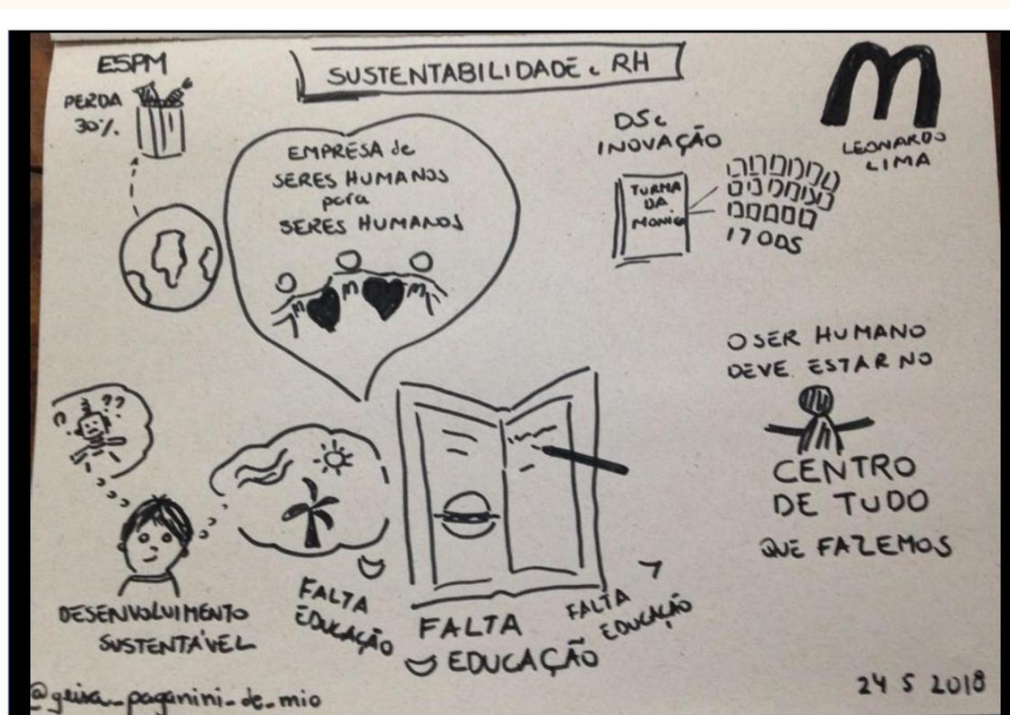 SUSTENTABILIDADE e RH
ESPM
PERDA
30%
EMPRESA de
SERES HUMANOS
para
SERES HUMANOS
DS e
INOVAÇÃO
TURMA
DA
MONICA
17 ODS
M
LEONARDO
LIMA
O SER HUMANO
DEVE ESTAR NO
CENTRO
DE TUDO
QUE FAZEMOS
??
DESENVOLVIMENTO
SUSTENTÁVEL
FALTA
EDUCAÇÃO
FALTA
EDUCAÇÃO
FALTA
EDUCAÇÃO
@geisa_paganini_de_mio
24 5 2018